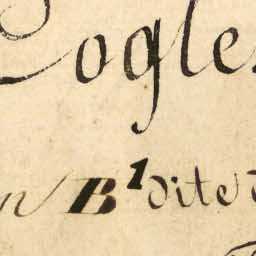 Cogles
n B¹ dite